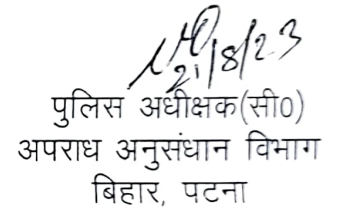 21/8/23
पुलिस अधीक्षक(सी0)
अपराध अनुसंधान विभाग
बिहार, पटना